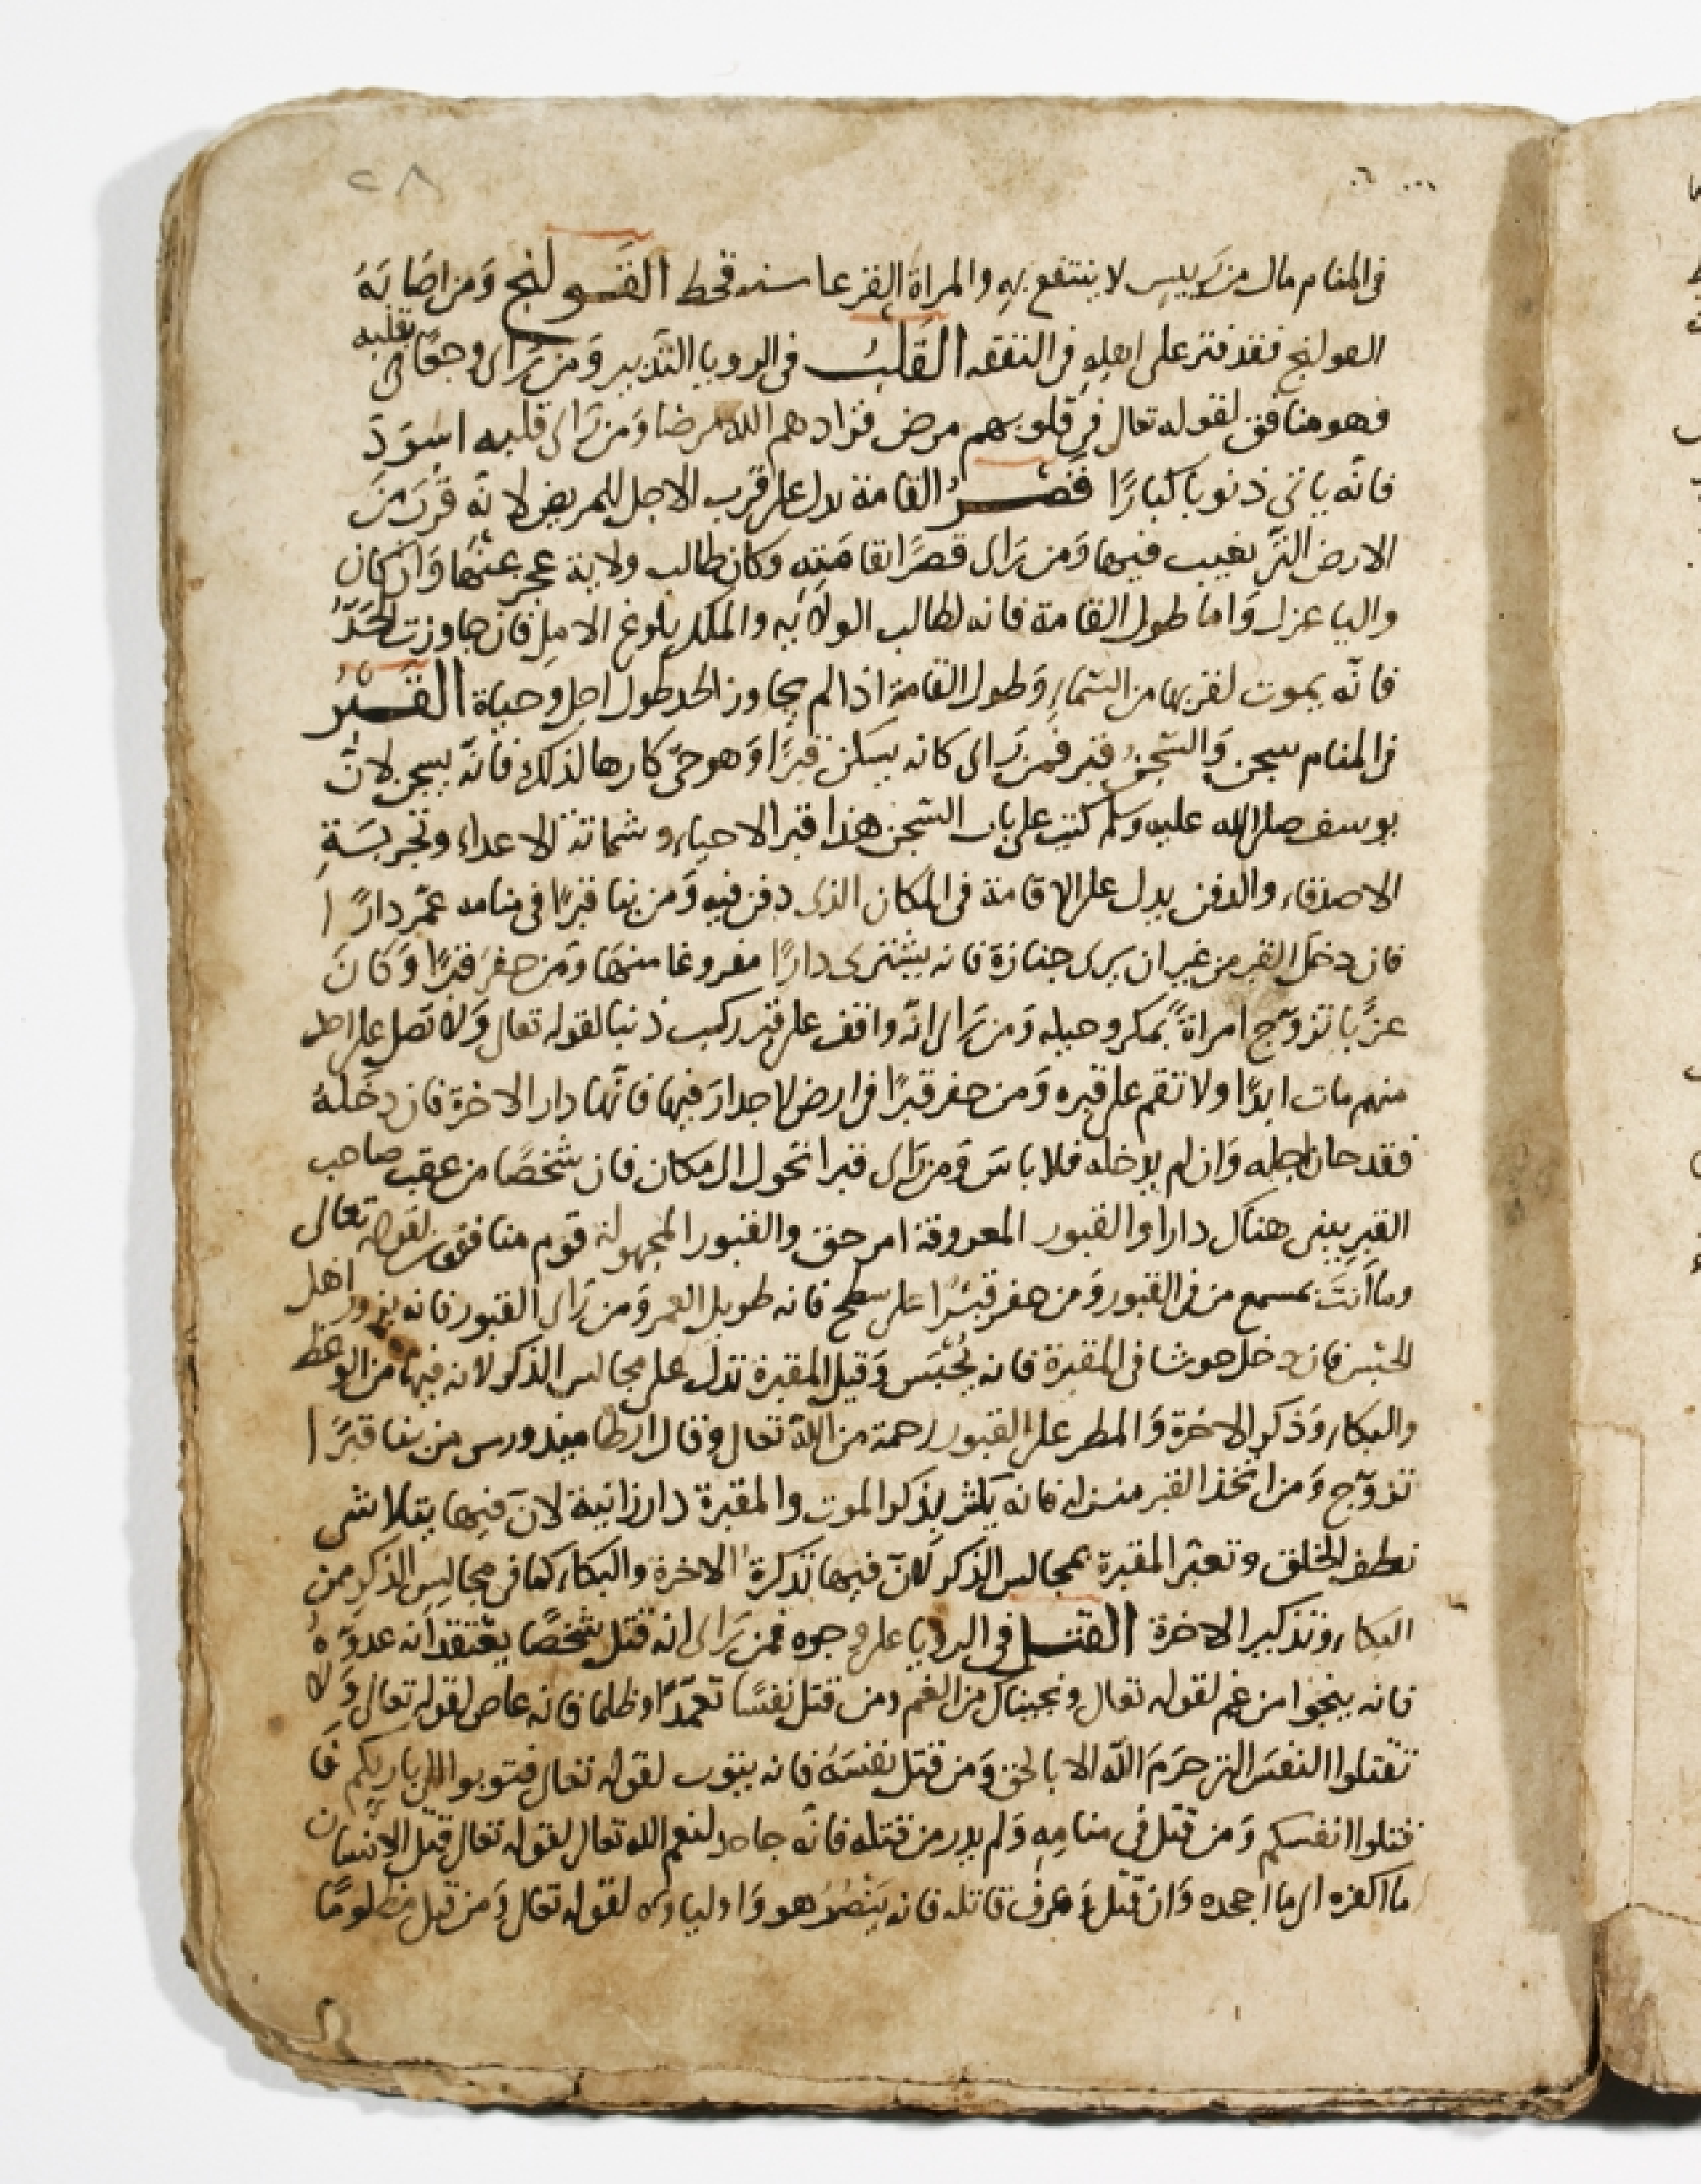 ٢٨
فى المنام مال من رييس لا ينتفع به والمراة القرعا سنة قحط القولنج وَمن اصَابَهُ
القولنج فقد قتر على اهلِهِ فى النفقه القَلبُ فى الرويا التدبير وَمن رَاى وجعًا فى بقلبه
فهو منافق لقوله تعالى فى قلوبهم مرض فزادهم الله مرضا وَمن رَاى قلبه اسْوَدَ
فانّه ياتى ذنوبا كبارًا قصرُ القامة يدل على قرب الاجل للمريض لانّه قرُبَ منَ
الارض التى يغيب فيها وَمن رَاى قصرًا بقامَتِهِ وكان طالب ولاية عجز عنهَا وَان كان
واليا عزل وَاما طول القامة فانه لطالب الولايه والملك بلوغ الامل فان جاوزت الحَدَّ
فانّه يموت لقربها من السّماءِ وَطول القامة اذا لم يجاوز الحد طول اجل وحياة القَبْرُ
فى المنام سجن وَالسّجنُ قبر فمن رَاى كانه يسكن قبرًا وَهو حىّ كارها لذلك فانّه يسجن لانّ
يوسف صلى الله عليه وسلم كتب على باب السّجن هذا قبر الاحياء وشماتة الاعداء وتجربَةِ
الاصدقاء والدفن يدل على الاقامة فى المكان الذى دفن فيه وَمن بنا قبرًا فى منامه عمّر دارًا
فان دخَل القبر من غير ان يرى جنازة فانه يشترى دارًا مفروغا منهَا وَمن حفرَ قبرًا وَكانَ
عزبًا تزوّج امراةً بمكر وحيله وَمن رَاى انّه واقف على قبر ركب ذنبا لقوله تعالى وَلا تصل على احد
منهم مات ابدًا ولا تقم على قبره وَمن حفر قبرًا فى ارض لا جدارَ فيها فانّها دار الاخرة فان دخَلهُ
فقد حان اجله وَان لم يدخله فلا باسَ وَمن رَاى قبرا تحول الى مكان فان شخصًا من عقب صاحب
القبرِ يبنى هناك دارا والقبور المعروفة امر حق والقبور المجهولة قوم منافقون لقوله تعالى
وما أنتَ بمسمع من فى القبور وَمن حفر قبْرًا على سطح فانه طويل العمر وَمن رَاى القبور فانه يزور اهل
الحبْس فان دخل حوشا فى المقبرة فانه يُحْبَس وَقيل المقبرة تدل على مجالس الذكر لانه فيها من الوعظ
والبكاء وَذكر الاخرة وَالمطر على القبور رحمة من اللّه تعالى وقال ارطاميدورس من بنا قبرًا
تزوّج وَمن اتخذ القبر منزله فانه يَكثر بذكر الموت والمقبرة دار زانية لانّ فيها يتلاشى
نطف الخلق وتعبّر المقبرة بمجالس الذكر لانّ فيها تذكرة الاخرة والبكاء كما فى مجالِس الذكرِ من
البكاء وتذكير الاخرة القتل فى الرويا على وجوه فمن رَاى انه قتل شخصًا يعتقد أنه عدوّهُ
فانه ينجوا من غم لقوله تعالى ونجيناك من الغم ومن قتل نفسًا تعمدًا وظلما فانه عاص لقوله تعالى وَلا
تقتلوا النفسَ التى حرَمَ اللّه الا بالحق وَمن قتل نفسَهُ فانه يتوب لقوله تعالى فتوبوا الى باريكم فا
قتلوا انفسكم وَمن قُتل فى منامِهِ وَلم يدر من قتله فانّه جاحد لنعم الله تعالى لقوله تعالى قتل الانسان
ما اكفره اى ما اجحده وَان قتل وَعرف قاتله فانه يَنْصُرُ هو وَاولياوه لقوله تعالى وَمن قتل مظلومًا